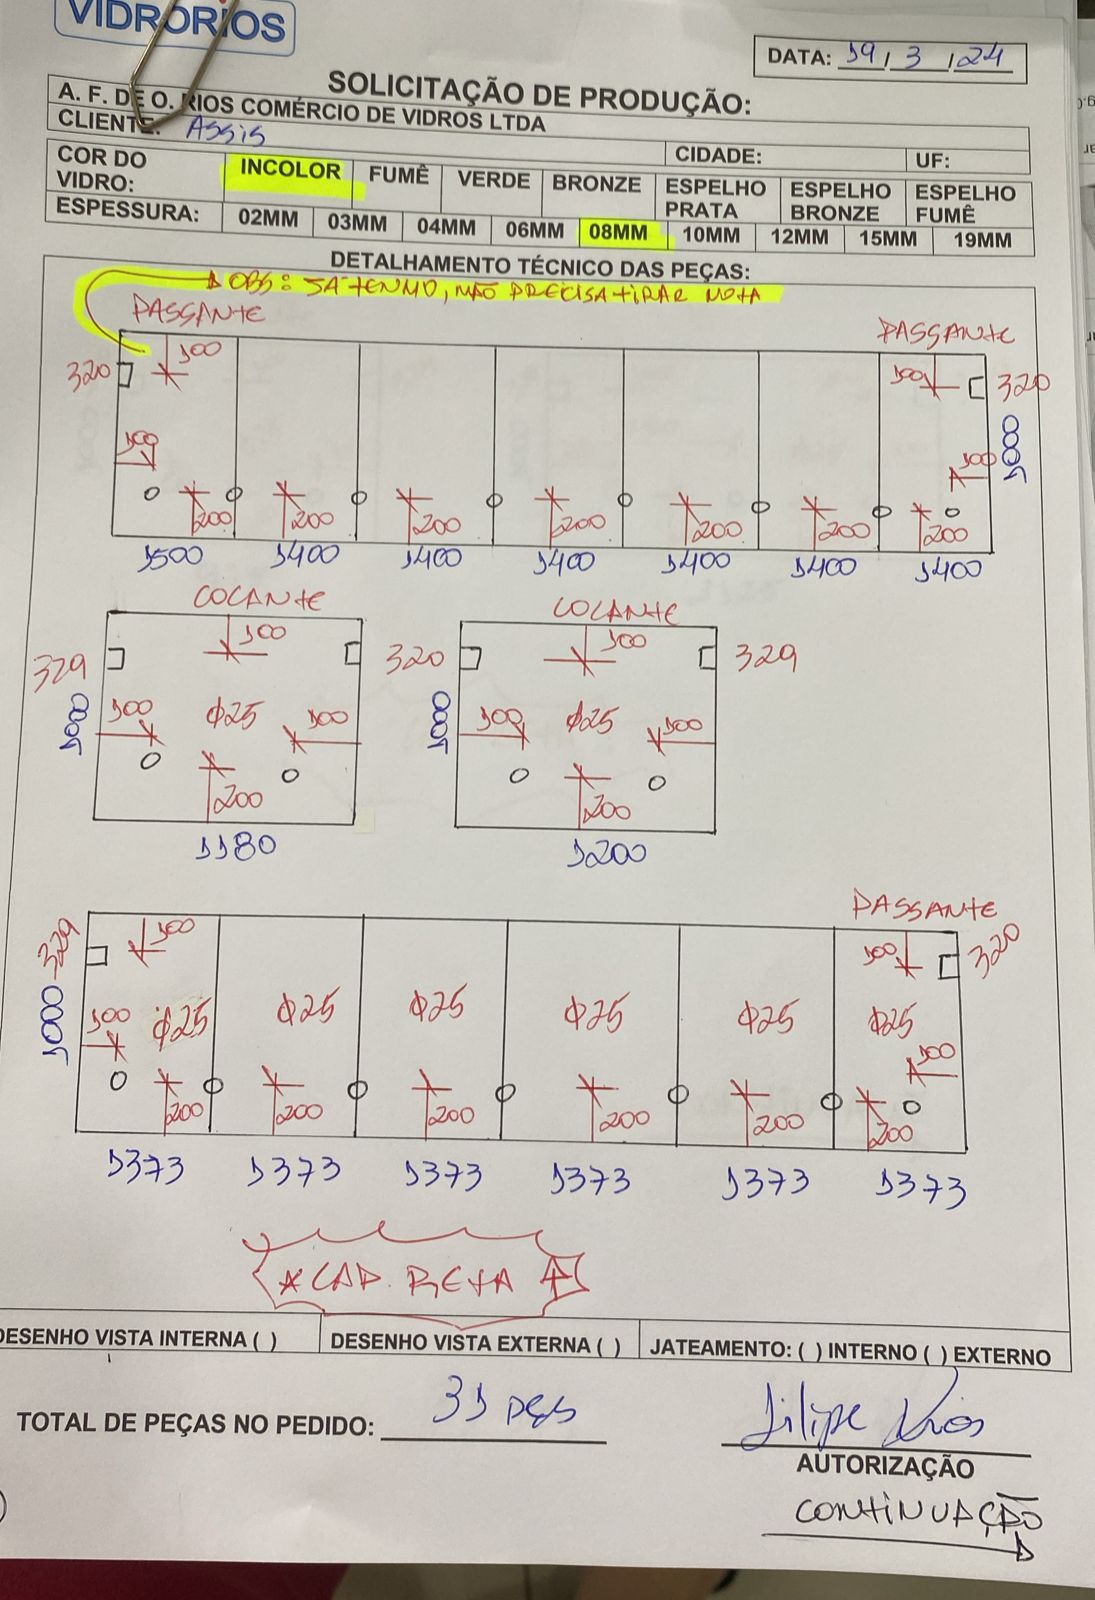 VIDRORIOS
DATA: 19 / 3 / 24
SOLICITAÇÃO DE PRODUÇÃO:
A. F. DE O. RIOS COMÉRCIO DE VIDROS LTDA
CLIENTE: Assis CIDADE: UF:
COR DO VIDRO: INCOLOR FUMÊ VERDE BRONZE ESPELHO PRATA ESPELHO BRONZE ESPELHO FUMÊ
ESPESSURA: 02MM 03MM 04MM 06MM 08MM 10MM 12MM 15MM 19MM
DETALHAMENTO TÉCNICO DAS PEÇAS:
OBS: JATENMO, NÃO PRECISA TIRAR NOTA
PASSANTE PASSANTE
320 100 100 320
1000
100 100
200 200 200 200 200 200 200
1500 1400 1400 1400 1400 1400 1400
COLANTE COLANTE
329 100 320 100 329
1000 100 Φ25 100 1000 100 Φ25 100
200 200
1180 1200
PASSANTE
329 100 100 320
1000 100 Φ25 Φ25 Φ25 Φ25 Φ25 Φ25 100
200 200 200 200 200 200
1373 1373 1373 1373 1373 1373
LAP. RETA
DESENHO VISTA INTERNA ( ) DESENHO VISTA EXTERNA ( ) JATEAMENTO: ( ) INTERNO ( ) EXTERNO
TOTAL DE PEÇAS NO PEDIDO: 31 pçs Filipe Rios
AUTORIZAÇÃO
CONTINUAÇÃO